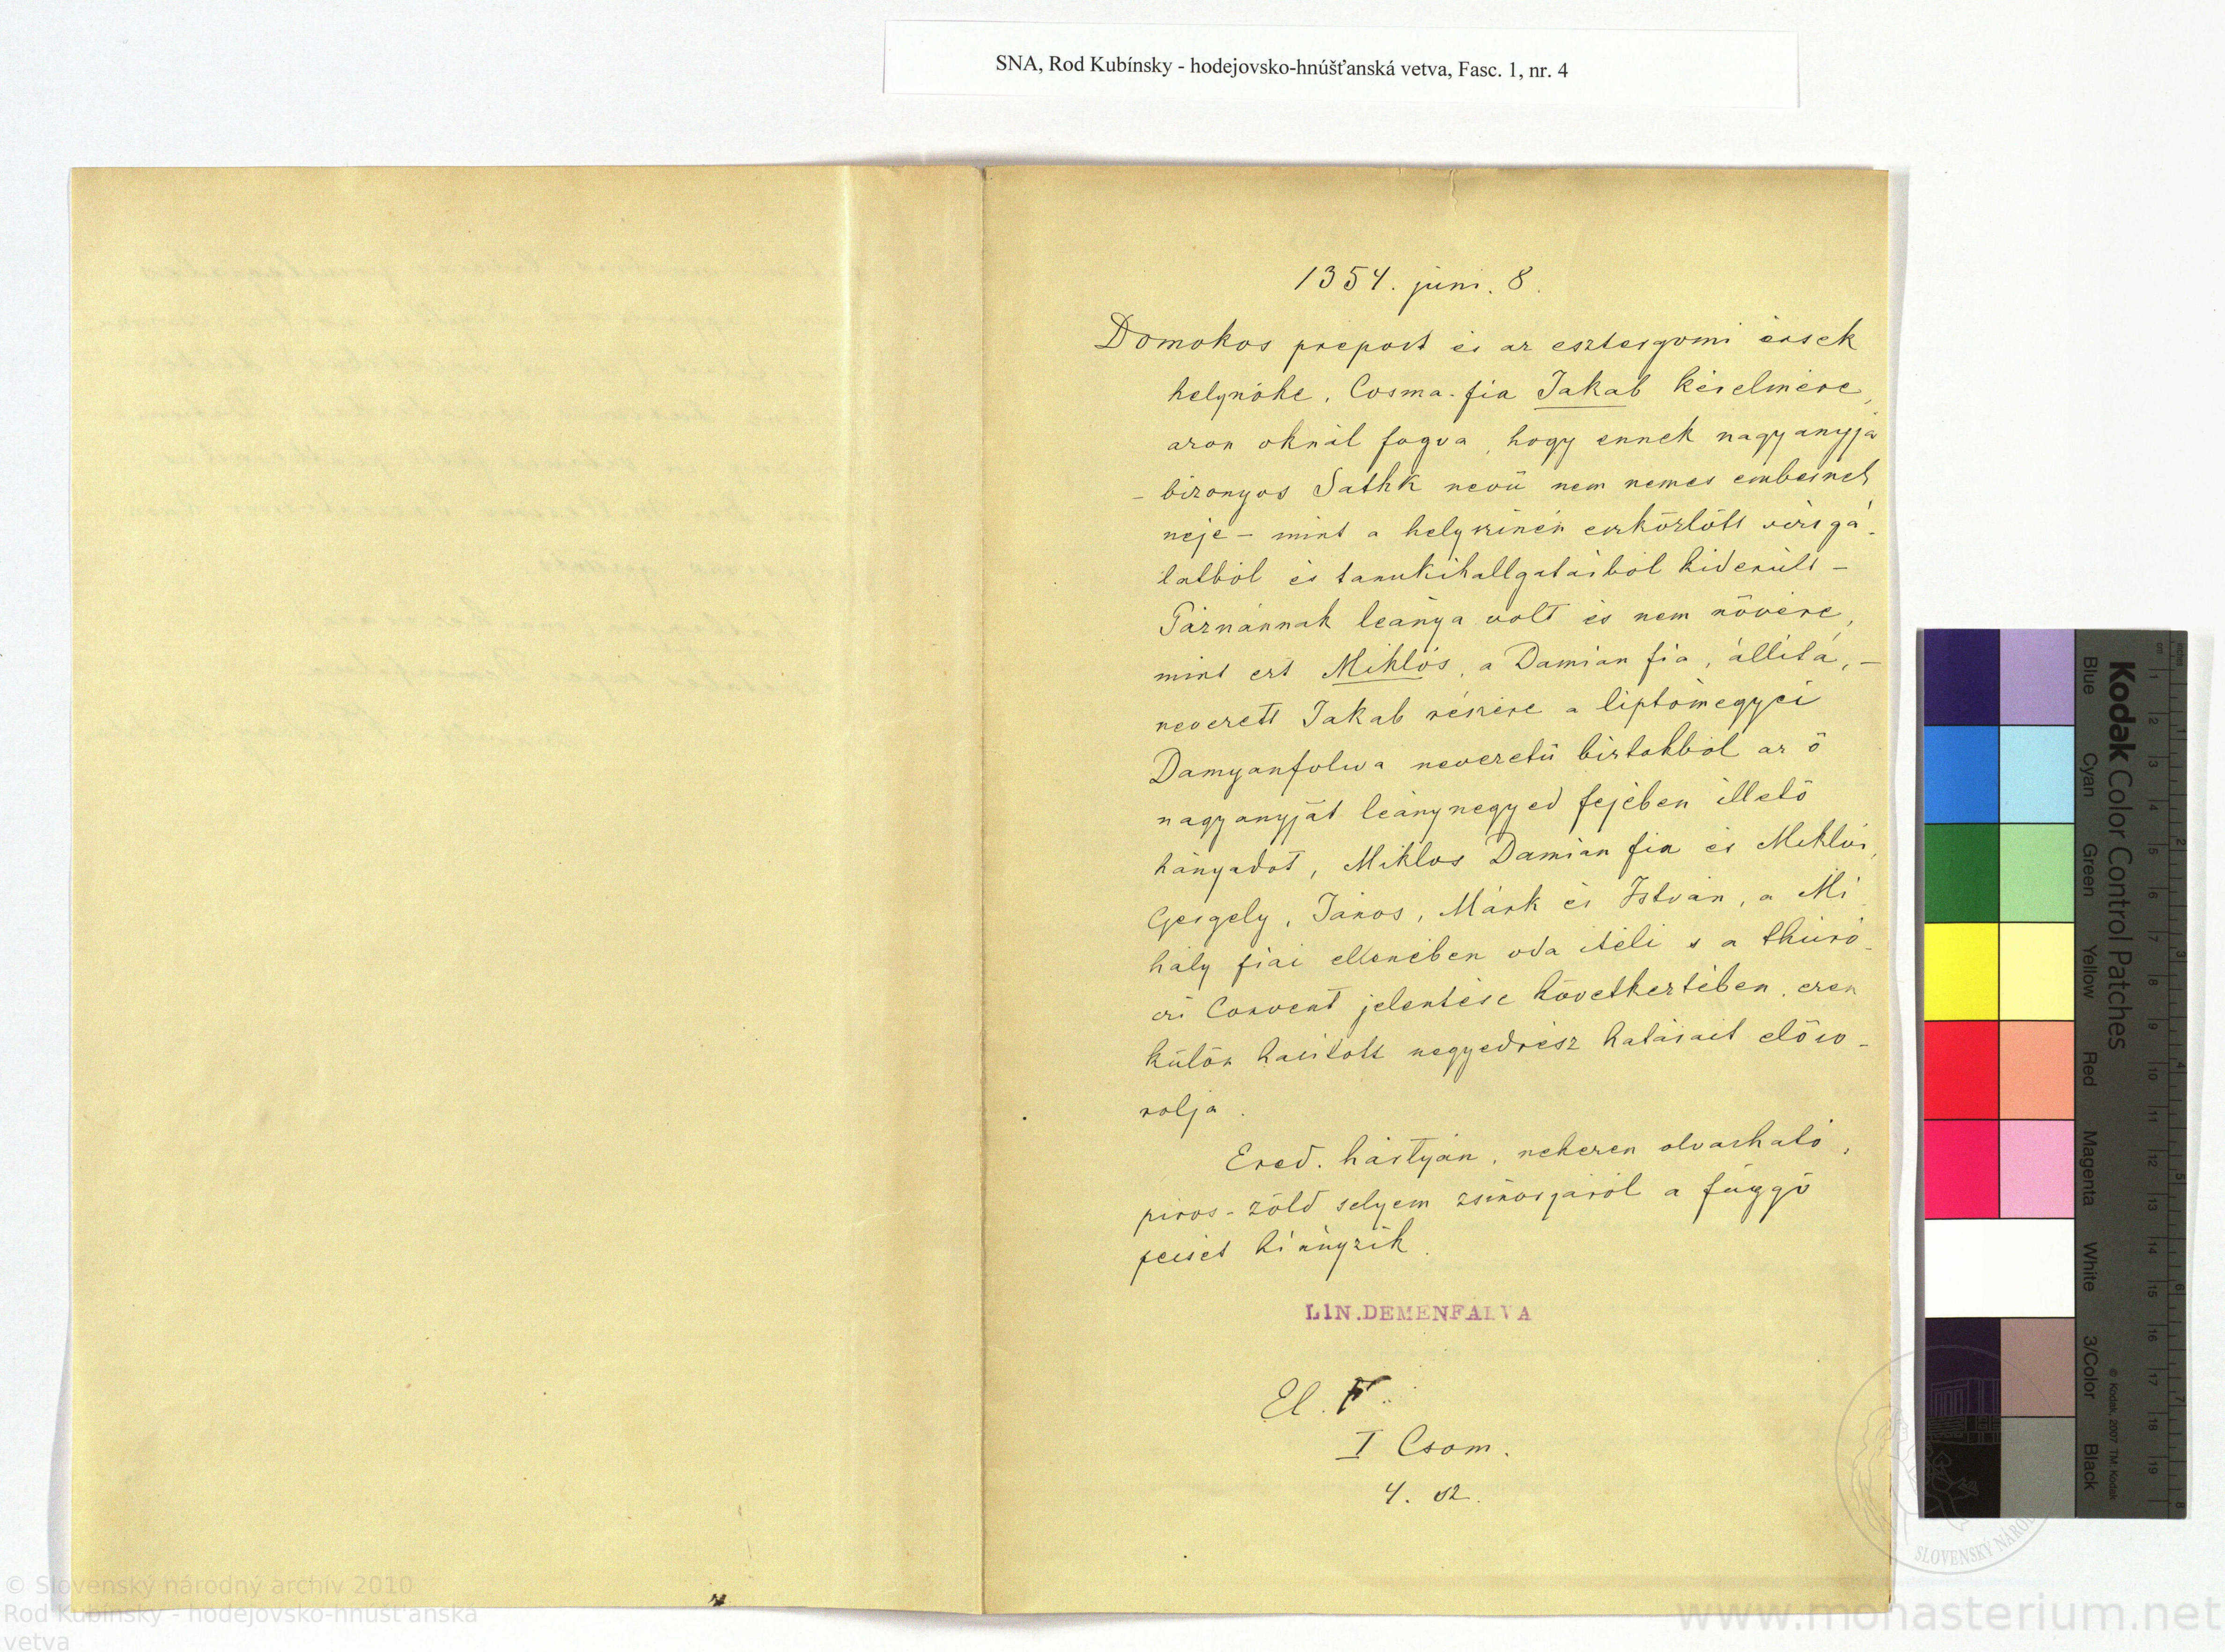 SNA, Rod Kubínsky - hodejovsko-hnúšťanská vetva, Fasc. 1, nr. 4
1354. juni. 8.
Domokos prépost és az esztergomi érsek
helynöke, Cosma. fia Jakab kérelmére,
azon oknál fogva, hogy ennek nagyanyja
- bizonyos Sathk nevü nem nemes embernek
neje - mint a helyszinén eszközlött vizsgá-
latból és tanukihallgatásból kiderült -
Párnánnak leánya volt és nem növére,
mint ezt Miklós, a Damián fia, állítá, -
nevezett Jakab részére a liptómegyei
Damyanfolwa nevezetü birtokból az ő
nagyanyját leánynegyed fejében illető
hányadot, Miklos Damián fia és Miklós,
Gergely, János, Márk és István, a Mi-
hály fiai ellenében oda itéli s a thúró-
czi Convent jelentése következtében, ezen
külön hasitott negyedrész határait elöso-
rolja.
Ered. hártyán, nehezen olvasható,
piros-zöld selyem zsinórjáról a függő
pecsét hiányzik.
LIN.DEMENFALVA
El. F.
I Csom.
4. sz.
Kodak Color Control Patches
© Kodak, 2007 TM: Kodak
Blue Cyan Green Yellow Red Magenta White 3/Color Black
inches 1 2 3 4 5 6 7 8
cm 1 2 3 4 5 6 7 8 9 10 11 12 13 14 15 16 17 18 19
SLOVENSKÝ NÁROD
© Slovenský národný archív 2010
Rod Kubínsky - hodejovsko-hnúšťanská
vetva
www.monasterium.net